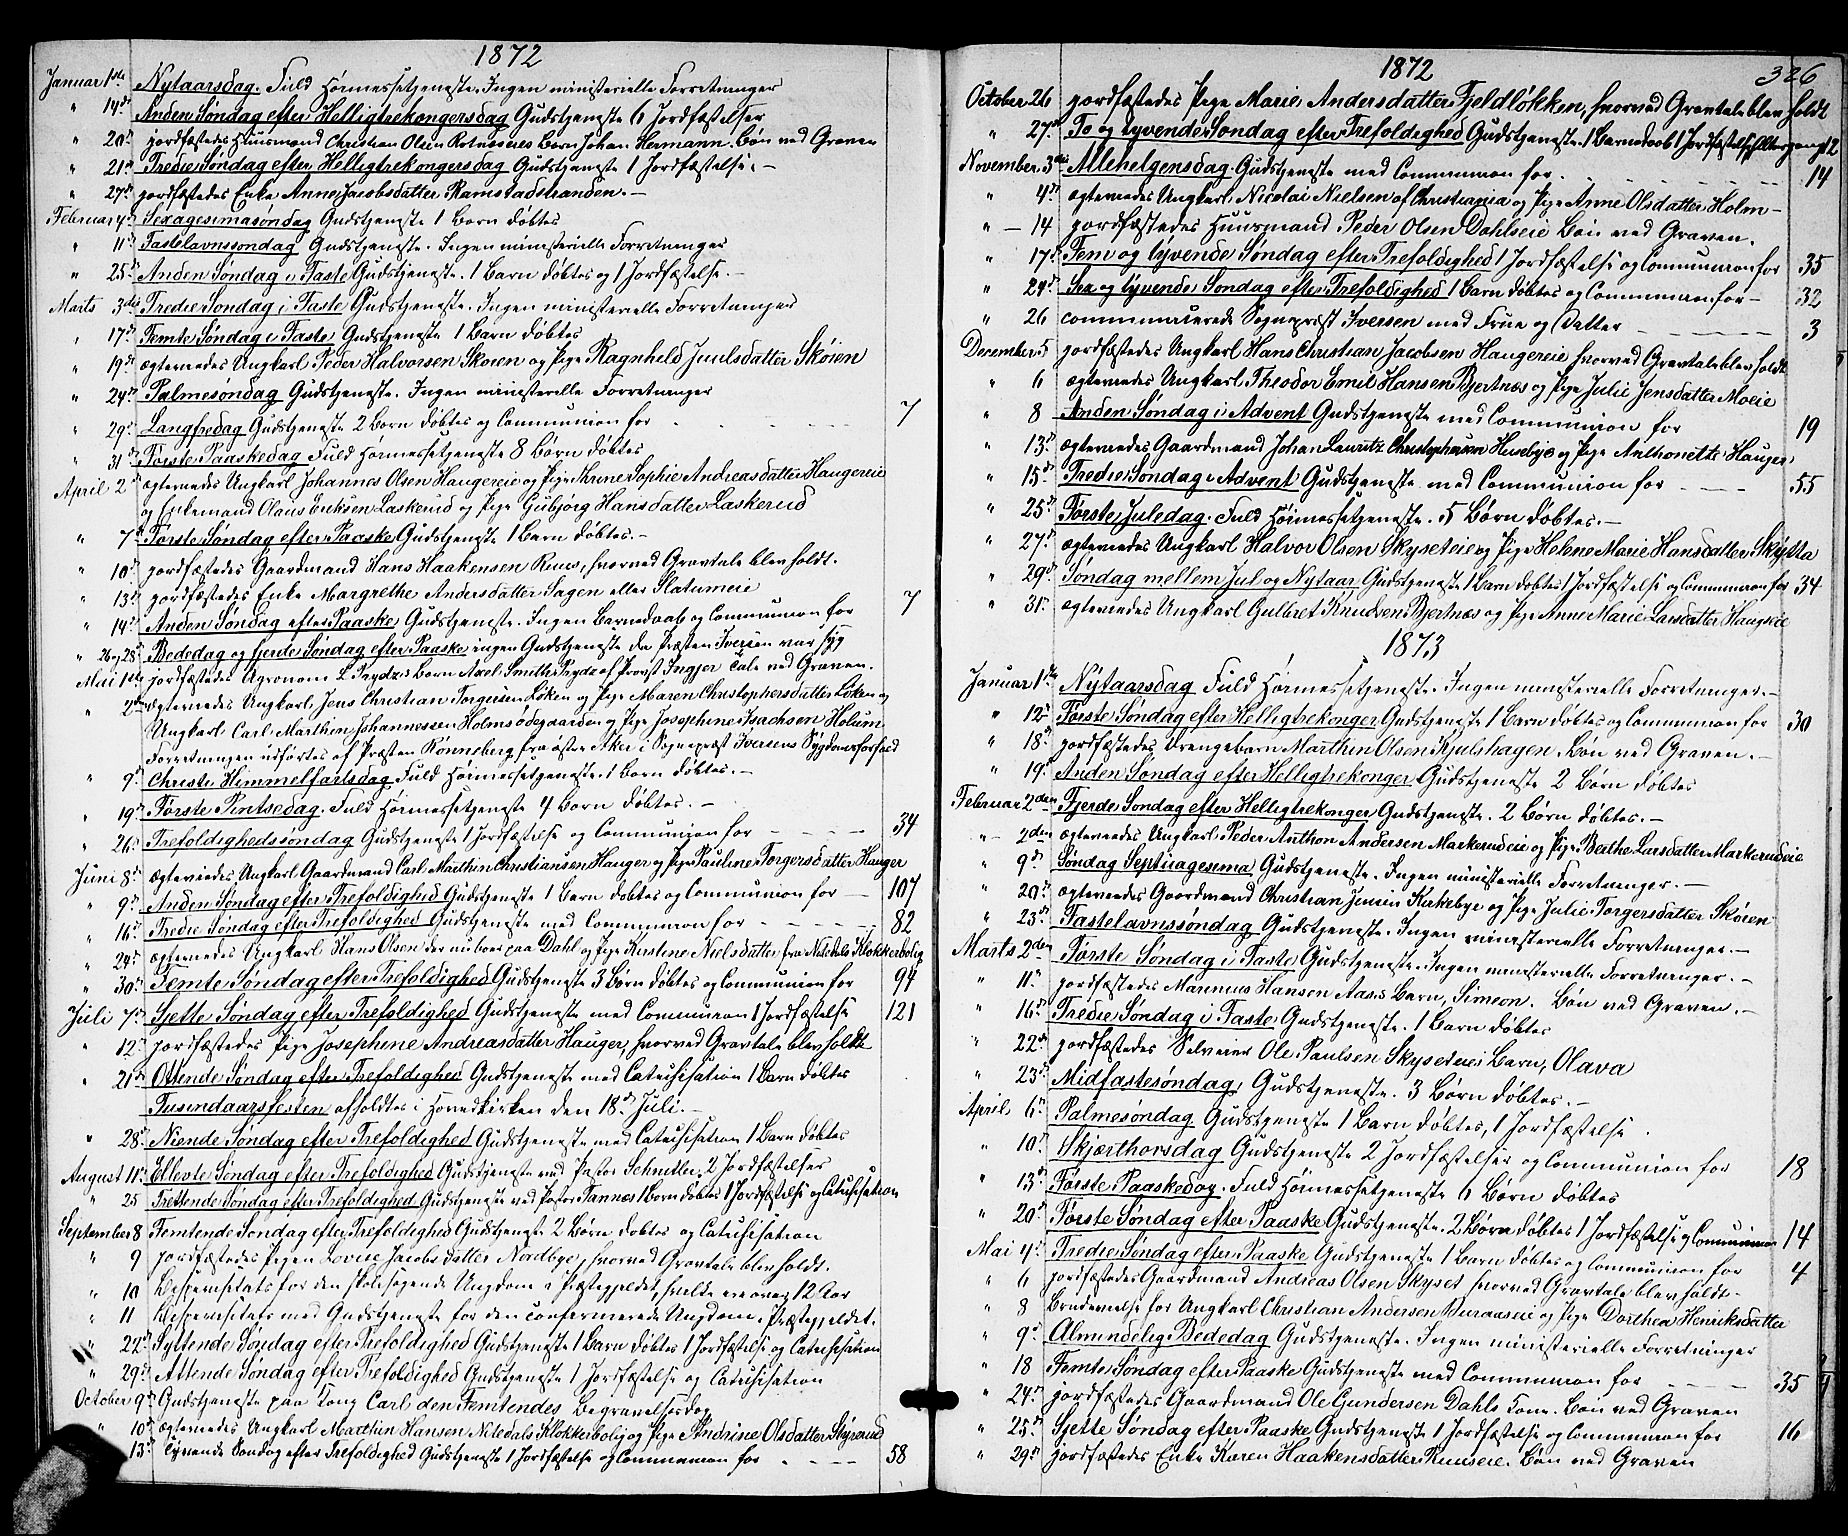 1872
Januar 1ste Nytaarsdag. Fuld Høimessetjeneste. Ingen ministerielle Forretninger
" 14de Anden Søndag efter Helligtrekongersdag Gudstjeneste 6 Jordfæstelser
" 20de jordfæstedes Huusmand Christian Olsen Rotnæseies Barn Johan Hermann. Bøn ved Graven
" 21de Tredie Søndag efter Helligtrekongersdag Gudstjeneste 1 Jordfæstelse. –
" 27de jordfæstedes Enke Anne Jacobsdatter Ramstadstranden. –
Februar 4de Sexagesimasøndag Gudstjeneste 1 Barn døbtes
" 11te Fastelavnssøndag Gudstjeneste. Ingen ministerielle Forretninger
" 25de Anden Søndag i Faste Gudstjeneste. 1 Barn døbtes og 1 Jordfæstelse. –
Marts 3die Tredie Søndag i Faste Gudstjeneste. Ingen ministerielle Forretninger
" 17de Femte Søndag i Faste Gudstjeneste 1 Barn døbtes
" 19de ægteviedes Ungkarl Peder Halvorsen Skøien og Pige Ragnheld Juulsdatter Skøien
" 24de Palmesøndag Gudstjeneste. Ingen ministerielle Forretninger
" 29de Langfredag Gudstjeneste 2 Børn døbtes og Communion for 7
" 31te Første Paaskedag Fuld Høimessetjeneste 8 Børn døbtes
April 2den ægteviedes Ungkarl Johannes Olsen Haugereie og Pige Karine Sophie Andreasdatter Haugereie
og Enkemand Olaus Eriksen Laskerud og Pige Gubjørg Hansdatter Laskerud
" 7de Første Søndag efter Paaske Gudstjeneste 1 Barn døbtes. –
" 10de jordfæstedes Gaardmand Hans Haakensen Ruus, hvorved Gravtale blev holdt.
" 13de jordfæstedes Enke Margrethe Andersdatter Sagen eller Slatumeie
" 14de Anden Søndag efter Paaske Gudstjeneste. Ingen Barnedaab og Communion for 7
" 26 og 28de Bededag og fjerde Søndag efter Paaske ingen Gudstjeneste da Præsten Iversen var syg
Mai 1ste jordfæstedes Agronom L. Prydzs Barn Axel Smith Prydz af Provst Ingjer Tale ved Graven.
" 2den ægteviedes Ungkarl Jens Christian Torgersen Løken og Pige Maren Christophersdatter Løken og
Ungkarl Carl Marthin Johannessen Holmsødegaarden og Pige Josephine Isachsen Holum
Forretningen udførtes af Præsten Rønneberg fra østre Aker i Sognepræst Iversens Sygdomsforfald
" 9de Christi Himmelfartsdag Fuld Høimessetjeneste 1 Barn døbtes. –
" 19de Første Pintsedag. Fuld Høimessetjeneste 4 Børn døbtes. –
" 26de Trefoldighedssøndag Gudstjeneste 1 Jordfæstelse og Communion for 34
Juni 8de ægteviedes Ungkarl Gaardmand Carl Marthin Christiansen Hauger og Pige Pauline Torgersdatter Hauger
" 9de Anden Søndag efter Trefoldighed Gudstjeneste 1 Barn døbtes og Communion for 107
" 16de Tredie Søndag efter Trefoldighed Gudstjeneste med Communion for 82
" 24de ægteviedes Ungkarl Hans Olsen der nu boer paa Dahl og Pige Kirstine Nielsdatter fra Nitedals Klokkerbolig
" 30te Femte Søndag efter Trefoldighed Gudstjeneste 3 Børn døbtes og Communion for 94
Juli 7de Sjette Søndag efter Trefoldighed Gudstjeneste med Communion 1 Jordfæstelse 121
" 12te jordfæstedes Pige Josephine Andreasdatter Hauger, hvorved Gravtale blev holdt
" 21de Ottende Søndag efter Trefoldighed Gudstjeneste med Catechisation 1 Barn døbtes
Tusindaarsfesten afholdtes i Hovedkirken den 18de Juli. –
" 28de Niende Søndag efter Trefoldighed Gudstjeneste med Catechisation 1 Barn døbtes
August 11te Ellevte Søndag efter Trefoldighed Gudstjeneste ved Pastor Schnitler. 2 Jordfæstelser
" 25 Trettende Søndag efter Trefoldighed Gudstjeneste ved Pastor Tannæs 1 Barn døbtes 1 Jordfæstelse og Catechisation
September 8 Femtende Søndag efter Trefoldighed Gudstjeneste 2 Børn døbtes og Catechisation
" 9 jordfæstedes Pigen Lovise Jacobsdatter Nordbye, hvorved Gravtale blev holdt.
" 10 Bispevisitats for den skolesøgende Ungdom i Præstegjeldet, hvilke ere over 12 Aar
" 11 Bispevisitats med Gudstjeneste for den confirmerede Ungdom i Præstegjeldet.
" 22de Syttende Søndag efter Trefoldighed Gudstjeneste 1 Barn døbtes 1 Jordfæstelse og Catechisation
" 29de Attende Søndag efter Trefoldighed Gudstjeneste 1 Jordfæstelse og Catechisation
October 9de Gudstjeneste paa Kong Carl den Femtendes Begravelsesdag
" 10de ægteviedes Ungkarl Marthin Hansen Nitedals Klokkerbolig og Pige Andrine Olsdatter Skyrerud
" 13de Tyvende Søndag efter Trefoldighed Gudstjeneste 1 Jordfæstelse og Communion for 58
1872 326
October 26 jordfæstedes Pige Marie Andersdatter Fjeldløkken, hvorved Gravtale blev holdt
" 27de To og tyvende Søndag efter Trefoldighed Gudstjeneste. 1 Barnedaab 1 Jordfæstelse, Altergang 12
November 3die Allehelgensdag. Gudstjeneste med Communion for 14
" 4de ægteviedes Ungkarl Nicolai Nielsen af Christiania og Pige Anne Olsdatter Holm –
" – 14 jordfæstedes Huusmand Peder Olsen Dahlseie Bøn ved Graven.
" 17de Fem og tyvende Søndag efter Trefoldighed 1 Jordfæstelse og Communion for 35
" 24de Sex og tyvende Søndag efter Trefoldighed 1 Barn døbtes og Communion for – 32
" 26 communicerede Sognepræst Iversen med Frue og Datter 3
December 5 jordfæstedes Ungkarl Hans Christian Jacobsen Haugereie hvorved Gravtale blev holdt
" 6 ægteviedes Ungkarl Theodor Emil Hansen Bjertnæs og Pige Julie Jensdatter Moeie
" 8 Anden Søndag i Advent Gudstjeneste med Communion for 19
" 13de ægteviedes Gaardmand Johan Lauritz Christophersen Husebye og Pige Anthonette Hauger
" 15de Tredie Søndag i Advent Gudstjeneste med Communion for 55
" 25de Første Juledag. Fuld Høimessetjeneste. 5 Børn døbtes. –
" 27de ægteviedes Ungkarl Halvor Olsen Skyseteie og Pige Helene Marie Hansdatter Skytta
" 29de Søndag mellem Jul og Nytaar Gudstjeneste 1 Barn døbtes 1 Jordfæstelse og Communion for 34
" 31te ægteviedes Ungkarl Gulbret Knudsen Bjertnæs og Pige Anne Marie Larsdatter Haugseie
1873
Januar 1ste Nytaarsdag Fuld Høimessetjeneste. Ingen ministerielle Forretninger. –
" 12te Første Søndag efter Helligtrekonger Gudstjeneste 1 Barn døbtes og Communion for 30
" 18de jordfæstedes Drengebarn Marthin Olsen Kjulshagen Bøn ved Graven. –
" 19de Anden Søndag efter Helligtrekonger Gudstjeneste 2 Børn døbtes
Februar 2den Fjerde Søndag efter Helligtrekonger Gudstjeneste. 2 Børn døbtes. –
" 2den ægteviedes Ungkarl Peder Anthon Andersen Markerudeie og Pige Berthe Larsdatter Markerudeie
" 9de Søndag Septuagesima Gudstjeneste. Ingen ministerielle Forretninger. –
" 20de ægteviedes Gaardmand Christian Jensen Kirkebye og Pige Julie Torgersdatter Skøien
" 23de Fastelavnssøndag Gudstjeneste. Ingen ministerielle Forretninger. –
Marts 2den Første Søndag i Faste Gudstjeneste. Ingen ministerielle Forretninger. –
" 11te jordfæstedes Marinius Hansen Aases Barn, Simeon. Bøn ved Graven. –
" 16de Tredie Søndag i Faste Gudstjeneste. 1 Barn døbtes
" 22de jordfæstedes Selveier Ole Paulsen Skyseteies Barn, Olava
" 23de Midfastesøndag, Gudstjeneste. 3 Børn døbtes. –
April 6te Palmesøndag Gudstjeneste 1 Barn døbtes, 1 Jordfæstelse
" 10de Skjærthorsdag Gudstjeneste 2 Jordfæstelser og Communion for 18
" 13de Første Paaskedag. Fuld Høimessetjeneste 6 Børn døbtes
" 20de Første Søndag efter Paaske Gudstjeneste. 2 Børn døbtes 1 Jordfæstelse og Communion 14
Mai 4de Tredie Søndag efter Paaske Gudstjeneste 1 Barn døbtes og Communion for 4
" 6 jordfæstedes Gaardmand Andreas Olsen Skyset hvorved Gravtale blev holdt. –
" 8 Brudevielse for Ungkarl Christian Andersen Buraaseie og Pige Dorthea Henriksdatter
" 9de Almindelig Bededag Gudstjeneste. Ingen ministerielle Forretninger
" 18 Femte Søndag efter Paaske Gudstjeneste med Communion for 35
" 24de jordfæstedes Gaardmand Ole Gundersen Dahls Kone. Bøn ved Graven
" 25de Sjette Søndag efter Paaske Gudstjeneste 1 Jordfæstelse og Communion for 16
" 29de jordfæstedes Enke Karen Haakensdatter Ruuseie. Bøn ved Graven